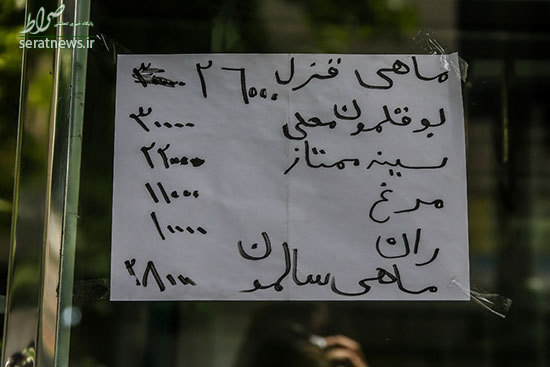 صراط
seratnews.ir
ماهی قزل ۲۶۰۰۰
بوقلمون محلی ۳۰۰۰۰
سینه ممتاز ۲۲۰۰۰
مرغ ۱۱۰۰۰
ران ۱۰۰۰۰
ماهی سالمون ۲۸۰۰۰